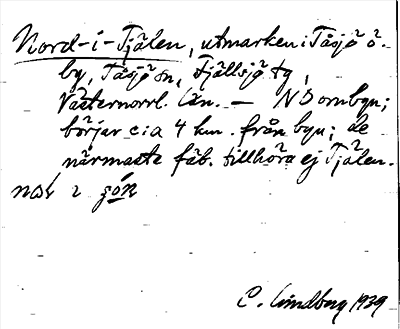 Nord-i-Tjälen, utmarken i Tåsjö ö.
by, Tåsjö sn, Fjällsjö tg,
Västernorrl. län. — NO om byn;
börjar c:a 4 km. från byn; de
närmaste fäb. tillhöra ej Tjälen.
C. Lindberg 1939